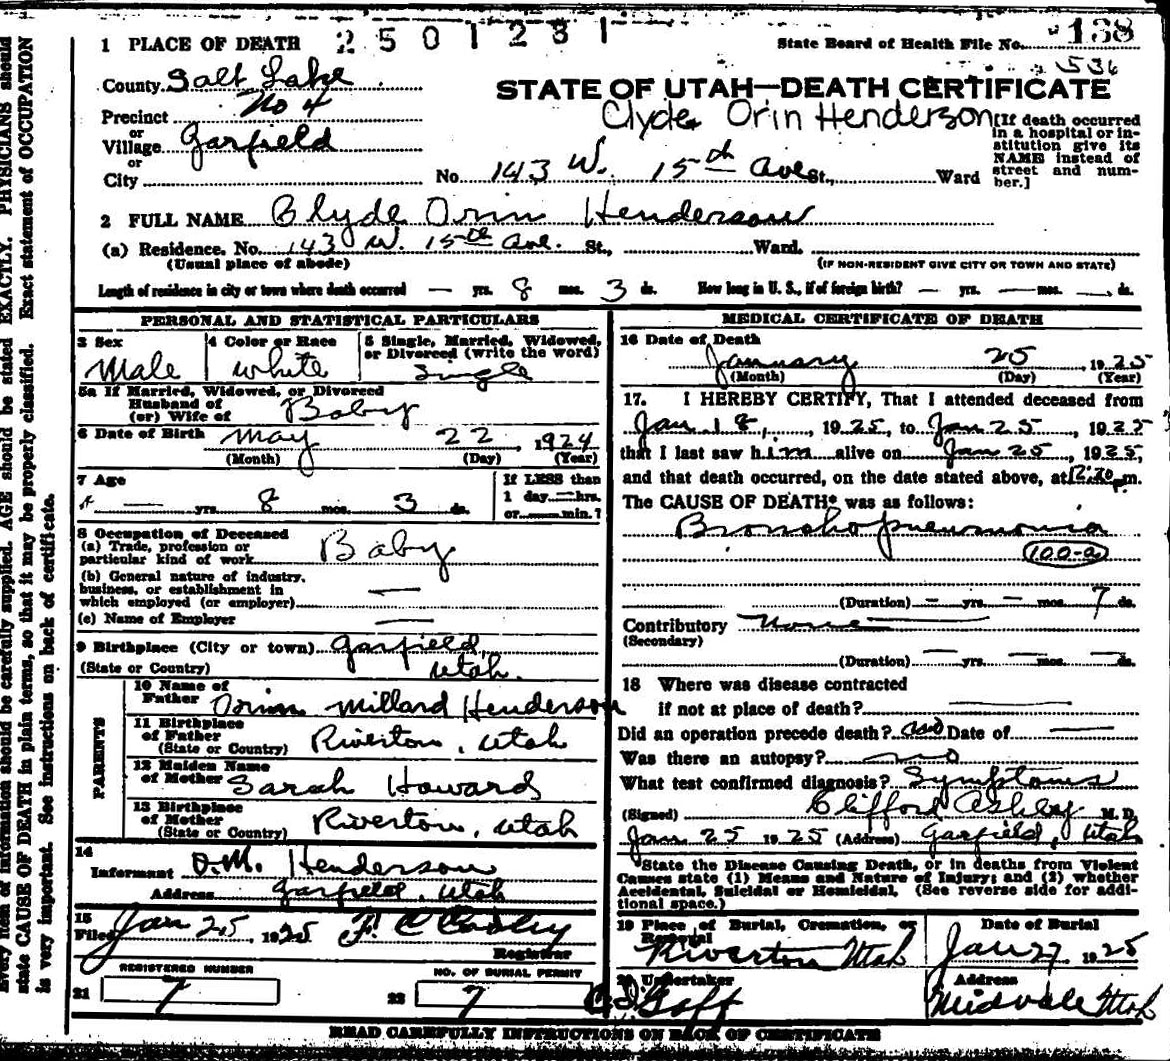 1 PLACE OF DEATH 2501231 State Board of Health File No. 138
536
County Salt Lake
STATE OF UTAH—DEATH CERTIFICATE
Precinct No 4
Clyde Orin Henderson
or
Village Garfield
or
City No 143 W. 15th Ave St., Ward
[If death occurred in a hospital or in-
stitution give its
NAME instead of
street and num-
ber.]
2 FULL NAME Clyde Orin Henderson
(a) Residence. No. 143 W. 15th Ave. St., Ward.
(Usual place of abode) (IF NON-RESIDENT GIVE CITY OR TOWN AND STATE)
Length of residence in city or town where death occurred — yrs. 8 mos. 3 ds. How long in U. S., if of foreign birth? — yrs. — mos. — ds.
PERSONAL AND STATISTICAL PARTICULARS
3 Sex Male
4 Color or Race white
5 Single, Married, Widowed,
or Divorced (write the word)
Single
5a If Married, Widowed, or Divorced
Husband of
(or) Wife of Baby
6 Date of Birth May 22, 1924
(Month) (Day) (Year)
7 Age — yrs. 8 mos. 3 ds.
If LESS than
1 day — hrs.
or — min.?
8 Occupation of Deceased
(a) Trade, profession or
particular kind of work Baby
(b) General nature of industry,
business, or establishment in
which employed (or employer) —
(c) Name of Employer —
9 Birthplace (City or town) Garfield,
(State or Country) Utah.
PARENTS
10 Name of
Father Orin Millard Henderson
11 Birthplace
of Father
(State or Country) Riverton, Utah
12 Maiden Name
of Mother Sarah Howard
13 Birthplace
of Mother
(State or Country) Riverton, Utah
14
Informant O.M. Henderson
Address Garfield, Utah
15
Filed Jan 25, 1925
Registrar
REGISTERED NUMBER NO. OF BURIAL PERMIT
21 7 22 7
MEDICAL CERTIFICATE OF DEATH
16 Date of Death
January 25, 1925
(Month) (Day) (Year)
17. I HEREBY CERTIFY, That I attended deceased from
Jan 18, 1925, to Jan 25, 1925
that I last saw him alive on Jan 25, 1925,
and that death occurred, on the date stated above, at 12:30 p.m.
The CAUSE OF DEATH* was as follows:
Bronchopneumonia
100-a
(Duration) — yrs. — mos. 7 ds.
Contributory None
(Secondary)
(Duration) — yrs. — mos. — ds.
18 Where was disease contracted
if not at place of death? —
Did an operation precede death? no Date of —
Was there an autopsy? no
What test confirmed diagnosis? Symptoms
(Signed) Clifford Ashby M. D.
Jan 25 1925 (Address) Garfield, Utah
*State the Disease Causing Death, or in deaths from Violent
Causes state (1) Means and Nature of Injury; and (2) whether
Accidental, Suicidal or Homicidal. (See reverse side for addi-
tional space.)
19 Place of Burial, Cremation, or
Removal
Riverton Utah
Date of Burial
Jan 27 1925
20 Undertaker
Goff
Address
Midvale Utah
READ CAREFULLY INSTRUCTIONS ON BACK OF CERTIFICATE
Every item of information should be carefully supplied. AGE should be stated EXACTLY. PHYSICIANS should
state CAUSE OF DEATH in plain terms, so that it may be properly classified. Exact statement of OCCUPATION
is very important. See instructions on back of certificate.